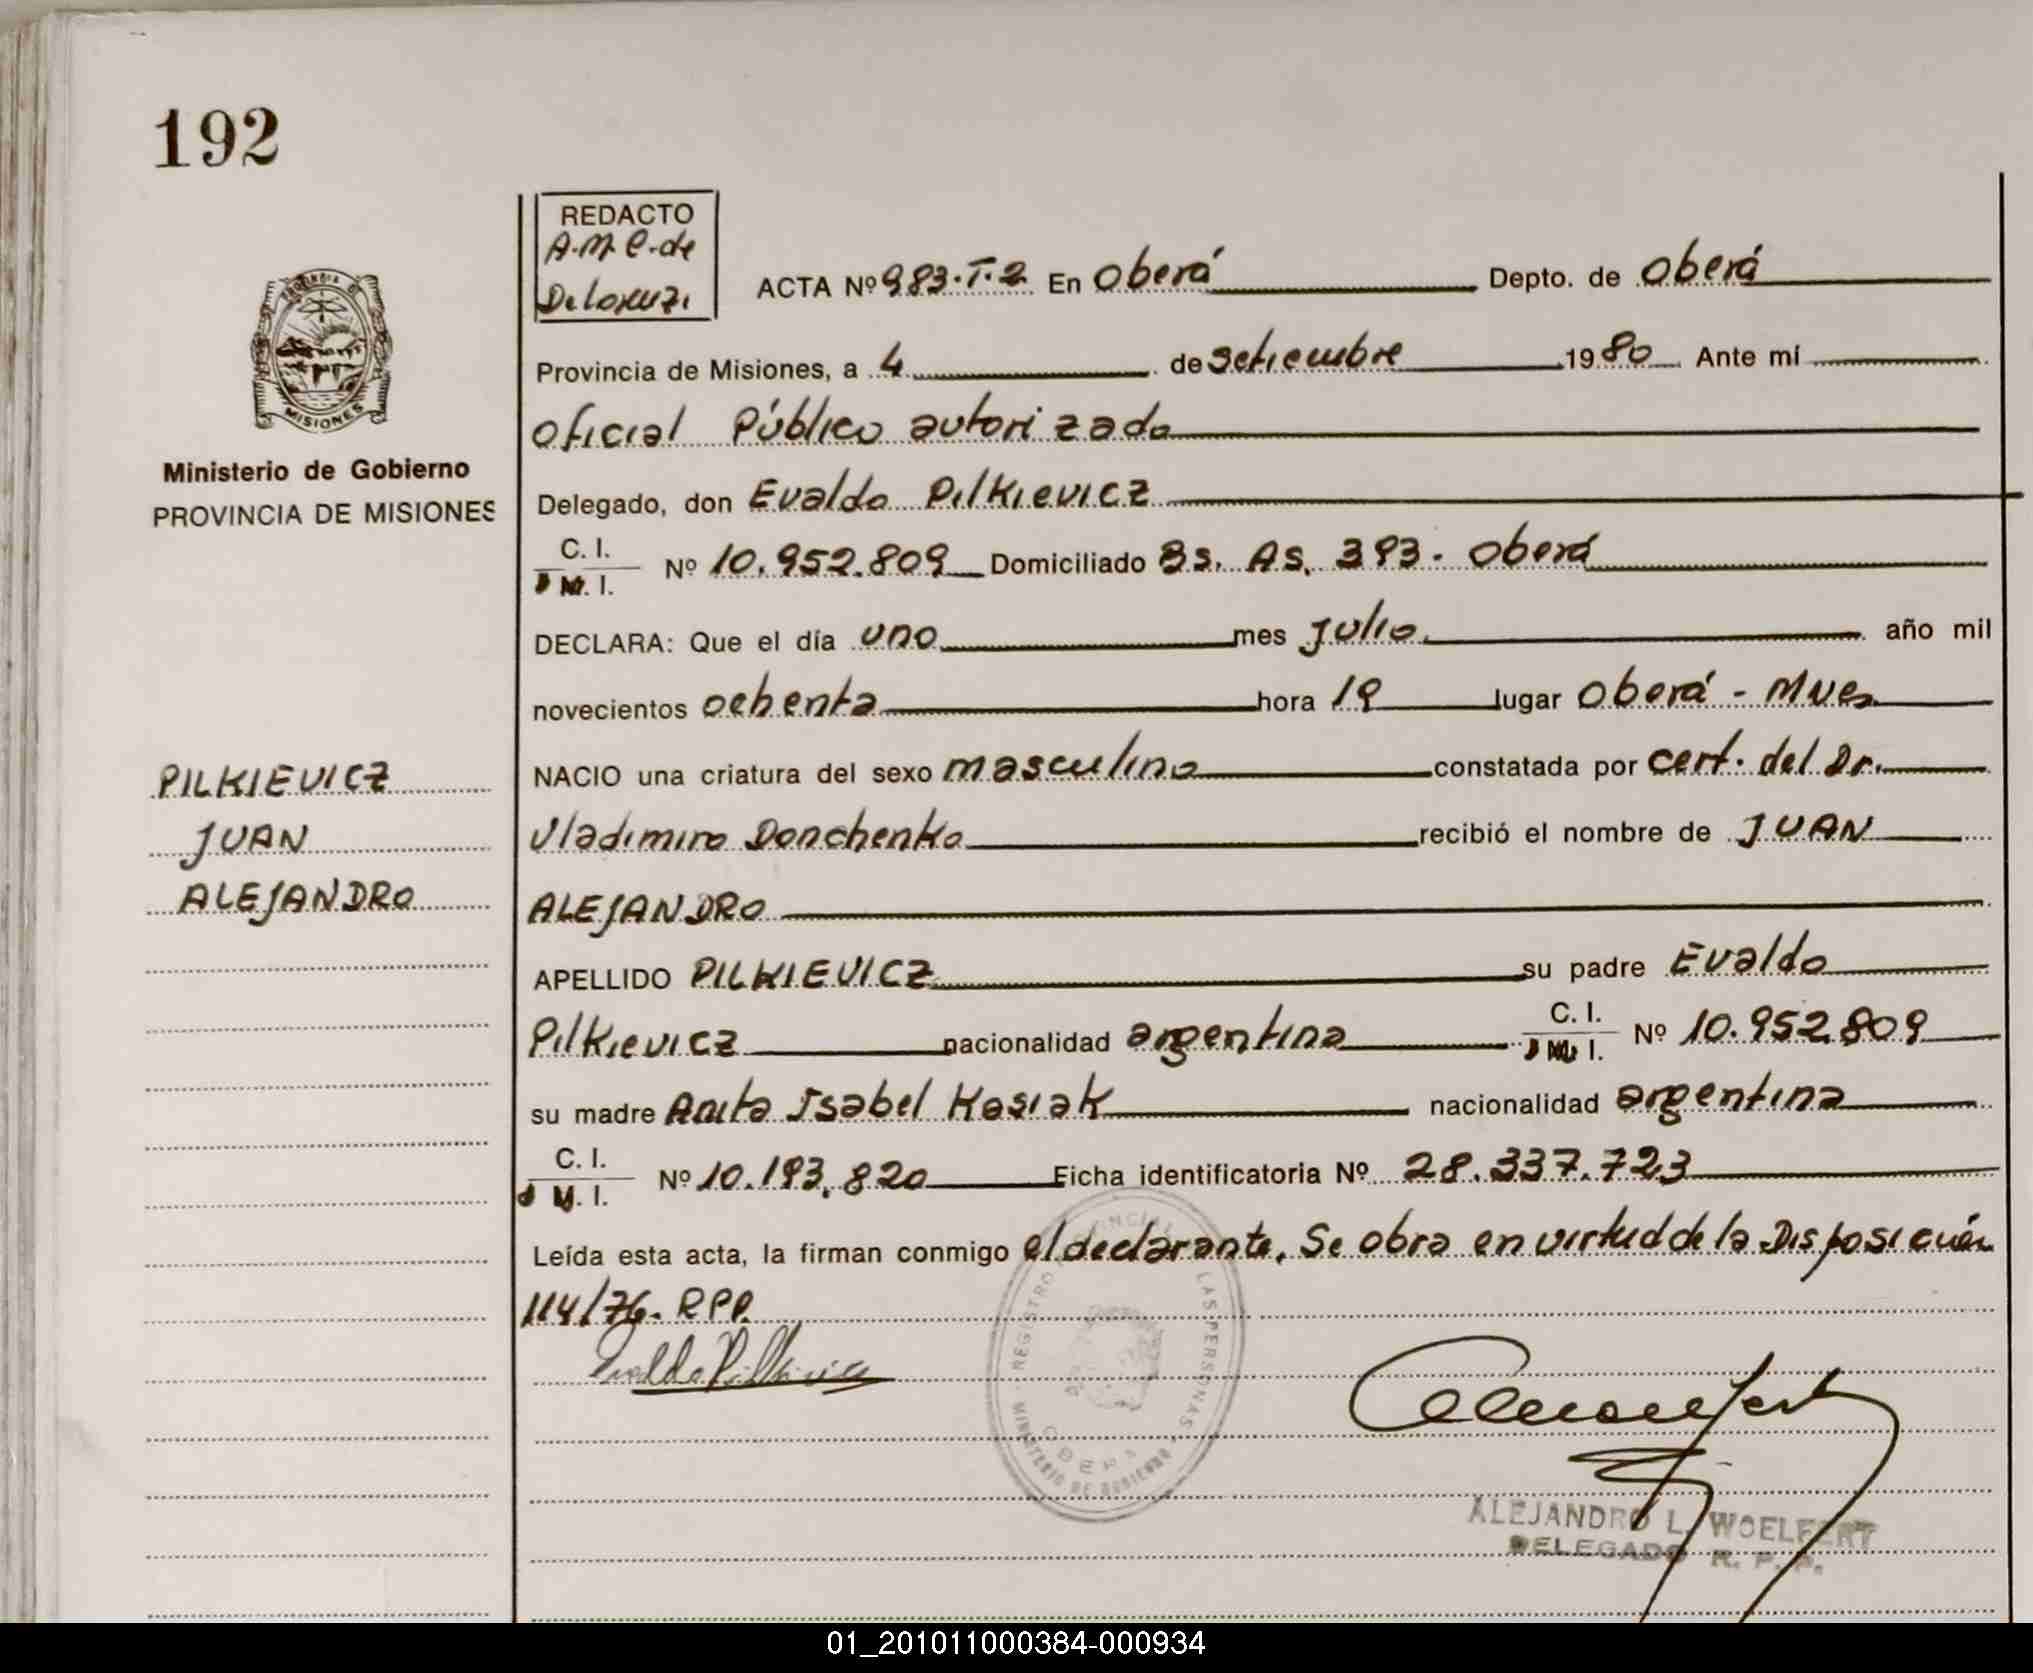 192
REDACTO
A.M.C. de
Delorenzi
ACTA Nº 983.T.2 En Oberá Depto. de Oberá
Provincia de Misiones, a 4 de setiembre 1980 Ante mí
Oficial Público autorizado
Ministerio de Gobierno
PROVINCIA DE MISIONES
Delegado, don Evaldo Pilkievicz
C. I.
M. I. Nº 10.952.809 Domiciliado Bs. As. 393. Oberá
DECLARA: Que el día uno mes julio año mil
novecientos ochenta hora 19 lugar Oberá - Mnes
PILKIEVICZ
JUAN
ALEJANDRO
NACIO una criatura del sexo masculino constatada por cert. del Dr.
Vladimiro Donchenko recibió el nombre de JUAN
ALEJANDRO
APELLIDO PILKIEVICZ su padre Evaldo
Pilkievicz nacionalidad argentina C. I. M. I. Nº 10.952.809
su madre Anita Isabel Kosiak nacionalidad argentina
C. I.
M. I. Nº 10.193.820 Ficha identificatoria Nº 28.337.723
Leída esta acta, la firman conmigo el declarante. Se obra en virtud de la Disposición
114/76. RPP.
Evaldo Pilkievicz
REGISTRO PROVINCIAL LAS PERSONAS
MINISTERIO DE GOBIERNO
OBERA
ALEJANDRO L. WOELFERT
DELEGADO R. P. P.
01_201011000384-000934